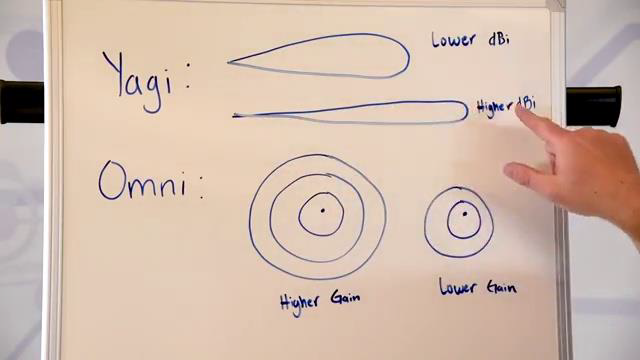 Yagi:
Lower dBi
Higher dBi
Omni:
Higher Gain
Lower Gain